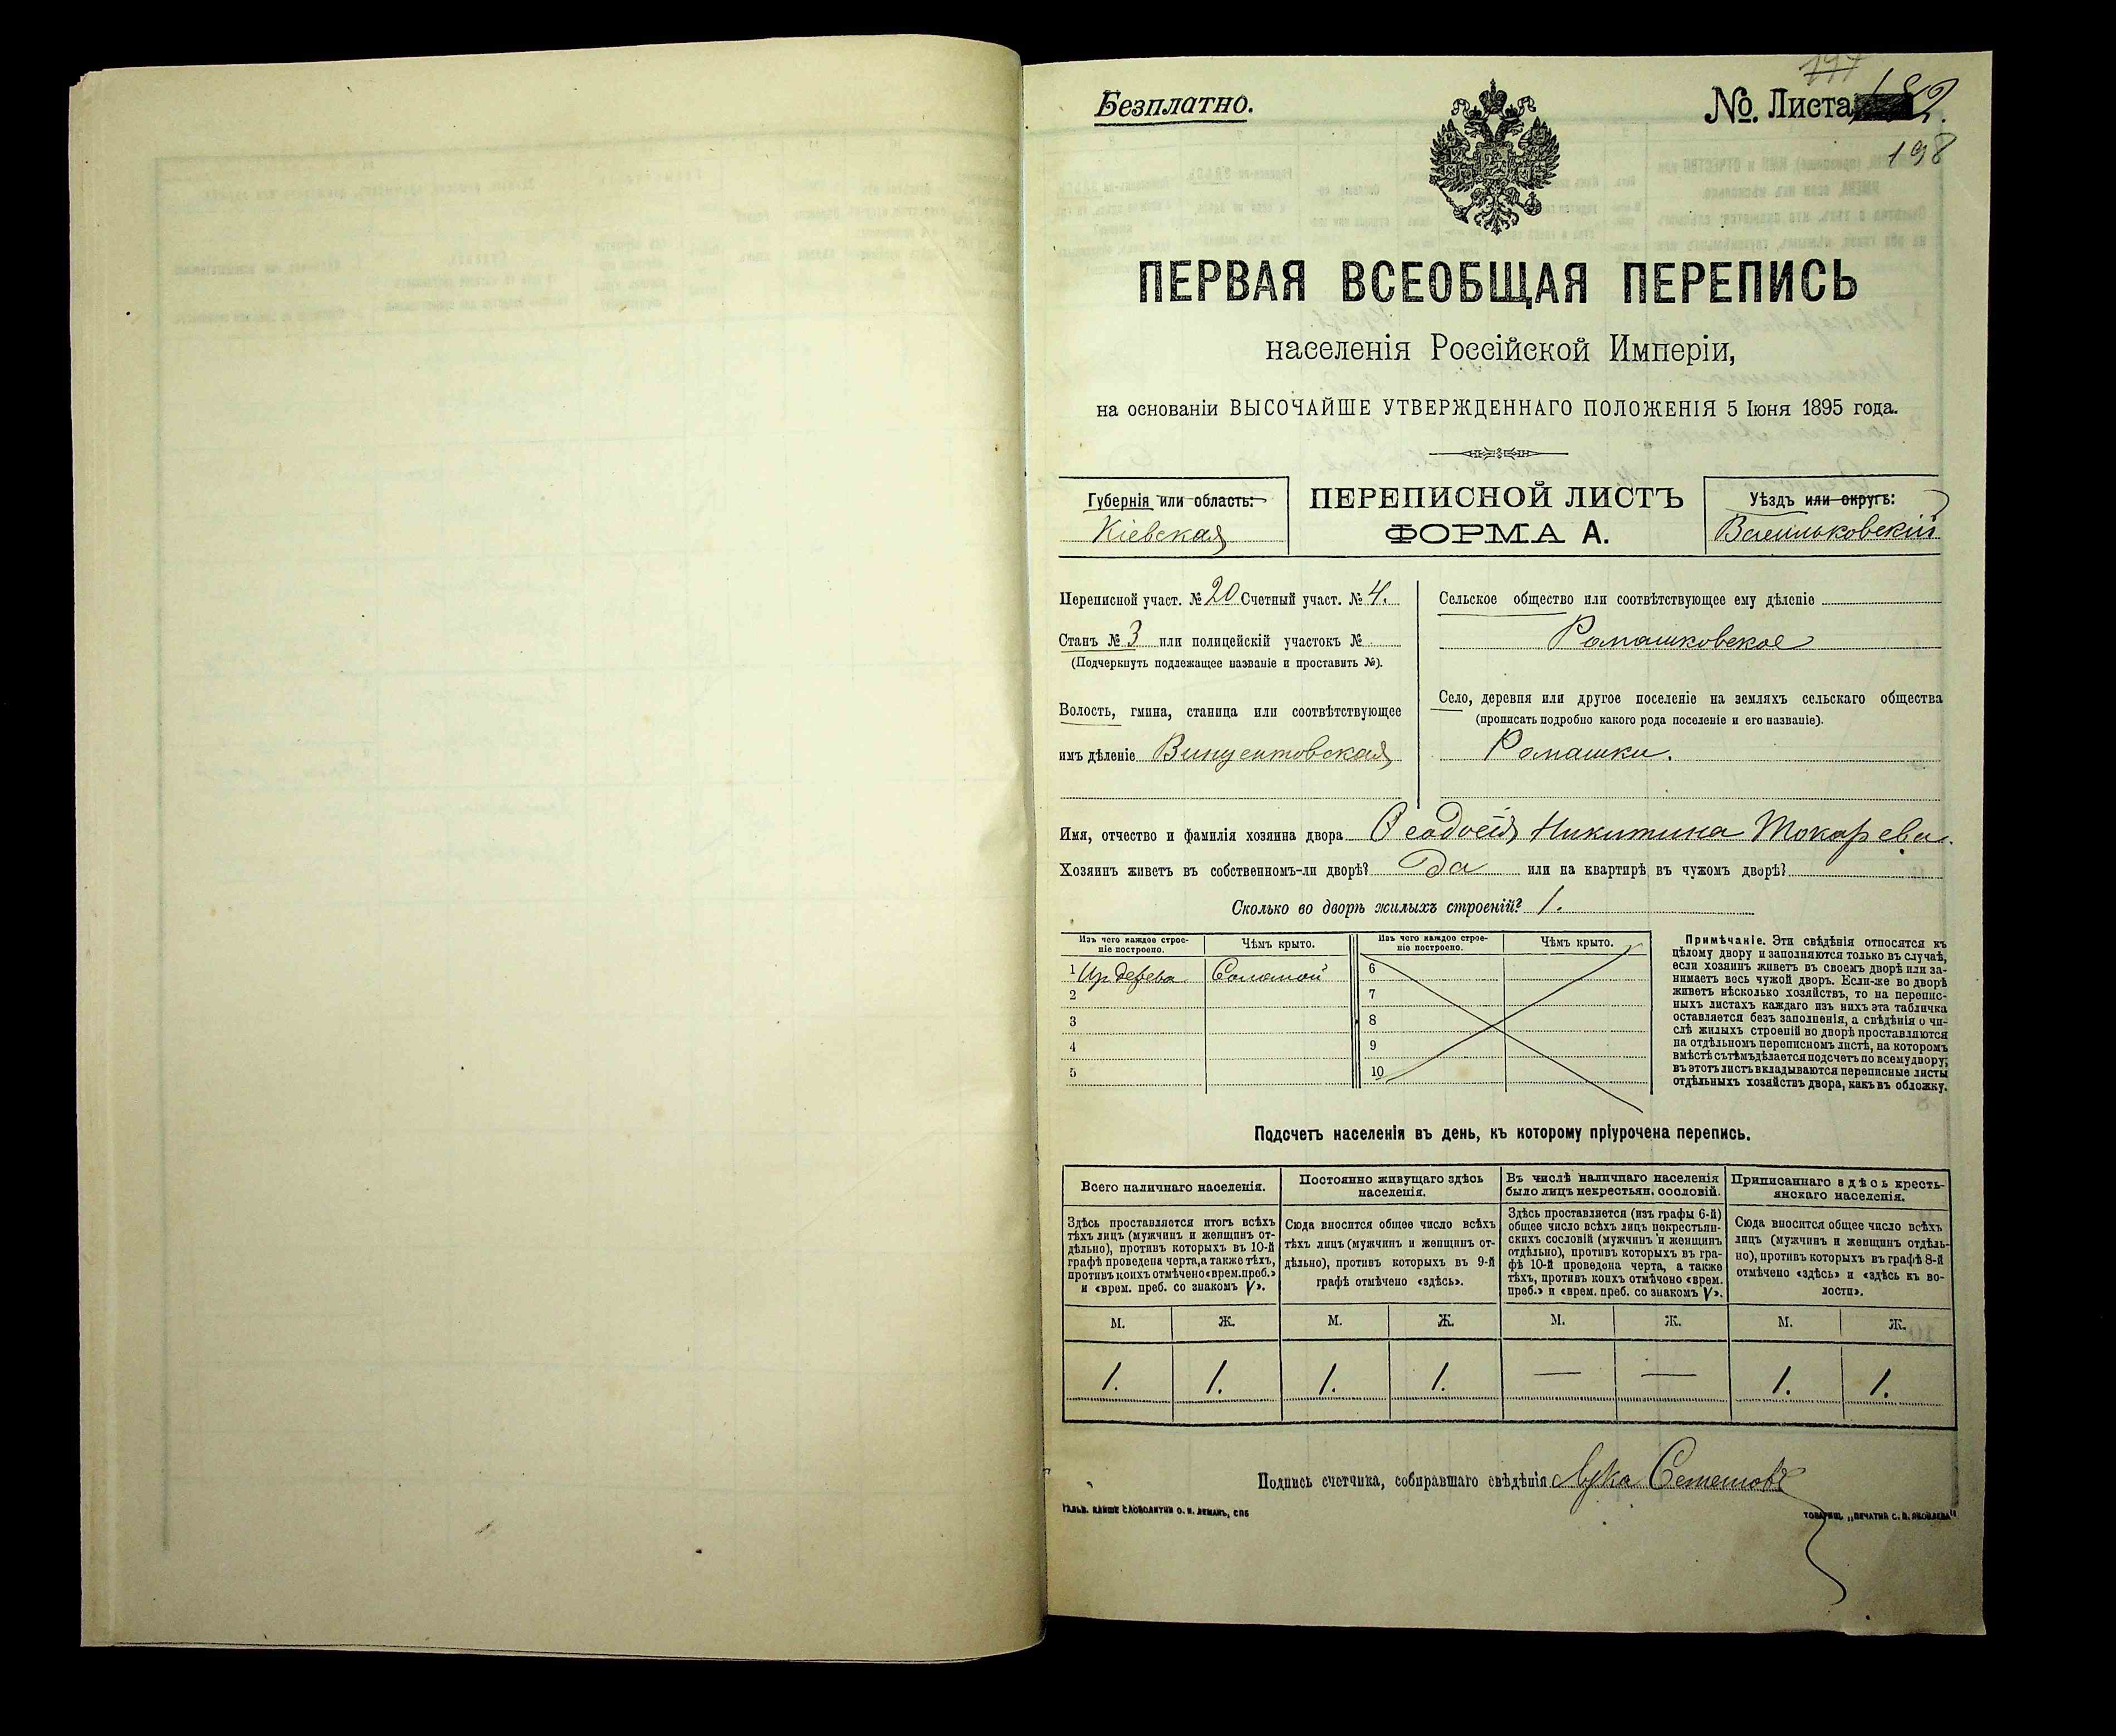 Безплатно.
№ Листа 182.
198
ПЕРВАЯ ВСЕОБЩАЯ ПЕРЕПИСЬ
населенія Россійской Имперіи,
на основаніи ВЫСОЧАЙШЕ УТВЕРЖДЕННАГО ПОЛОЖЕНІЯ 5 Іюня 1895 года.
Губернія или область:
Кіевская
ПЕРЕПИСНОЙ ЛИСТЪ
ФОРМА А.
Уѣздъ или округъ:
Васильковскій
Переписной участ. № 20 Счетный участ. № 4.
Станъ № 3 или полицейскій участокъ №
(Подчеркнуть подлежащее названіе и проставить №).
Волость, гмина, станица или соотвѣтствующее
имъ дѣленіе Винцентовская
Сельское общество или соотвѣтствующее ему дѣленіе
Ромашковское
Село, деревня или другое поселеніе на земляхъ сельскаго общества
(прописать подробно какого рода поселеніе и его названіе).
Ромашки.
Имя, отчество и фамилія хозяина двора Ѳеодосія Никитина Токарева.
Хозяинъ живетъ въ собственномъ-ли дворѣ? Да или на квартирѣ въ чужомъ дворѣ?
Сколько во дворѣ жилыхъ строеній? 1.
Изъ чего каждое строеніе построено.
Чѣмъ крыто.
Изъ чего каждое строеніе построено.
Чѣмъ крыто.
1 Из дерева Соломой
2
3
4
5
6
7
8
9
10
Примѣчаніе. Эти свѣдѣнія относятся къ
цѣлому двору и заполняются только въ случаѣ,
если хозяинъ живетъ въ своемъ дворѣ или за-
нимаетъ весь чужой дворъ. Если-же во дворѣ
живетъ нѣсколько хозяйствъ, то на перепис-
ныхъ листахъ каждаго изъ нихъ эта табличка
оставляется безъ заполненія, а свѣдѣнія о чи-
слѣ жилыхъ строеній во дворѣ проставляются
на отдѣльномъ переписномъ листѣ, на которомъ
вмѣстѣ съ тѣмъ дѣлается подсчетъ по всему двору;
въ этотъ листъ вкладываются переписные листы
отдѣльныхъ хозяйствъ двора, какъ въ обложку.
Подсчетъ населенія въ день, къ которому пріурочена перепись.
Всего наличнаго населенія.
Здѣсь проставляется итогъ всѣхъ
тѣхъ лицъ (мужчинъ и женщинъ от-
дѣльно), противъ которыхъ въ 10-й
графѣ проведена черта, а также тѣхъ,
противъ коихъ отмѣчено «врем. преб.»
и «врем. преб. со знакомъ V».
Постоянно живущаго здѣсь
населенія.
Сюда вносится общее число всѣхъ
тѣхъ лицъ (мужчинъ и женщинъ от-
дѣльно), противъ которыхъ въ 9-й
графѣ отмѣчено «здѣсь».
Въ числѣ наличнаго населенія
было лицъ некрестьян. сословій.
Здѣсь проставляется (изъ графы 6-й)
общее число всѣхъ лицъ некрестьян-
скихъ сословій (мужчинъ и женщинъ
отдѣльно), противъ которыхъ въ гра-
фѣ 10-й проведена черта, а также
тѣхъ, противъ коихъ отмѣчено «врем.
преб.» и «врем. преб. со знакомъ V».
Приписаннаго здѣсь кресть-
янскаго населенія.
Сюда вносится общее число всѣхъ
лицъ (мужчинъ и женщинъ отдѣль-
но), противъ которыхъ въ графѣ 8-й
отмѣчено «здѣсь» и «здѣсь къ во-
лости».
М. Ж. М. Ж. М. Ж. М. Ж.
1. 1. 1. 1. — — 1. 1.
Подпись счетчика, собиравшаго свѣдѣнія Лука
ГАЛЬВ. КЛИШЕ СЛОВОЛИТНИ О. И. ЛЕМАНЪ, СПБ
ТОВАРИЩ. „ПЕЧАТНЯ С. П. ЯКОВЛЕВА"